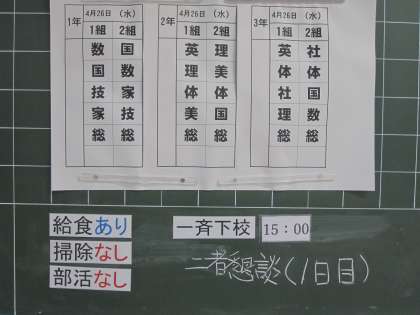 1年 4月26日 (水)
1組 2組
数 国
国 数
技 家
家 技
総 総
2年 4月26日 (水)
1組 2組
英 理
理 美
体 体
美 国
総 総
3年 4月26日 (水)
1組 2組
英 社
体 体
社 国
理 数
総 総
給食あり
掃除なし
部活なし
一斉下校 15:00
二者懇談(1日目)